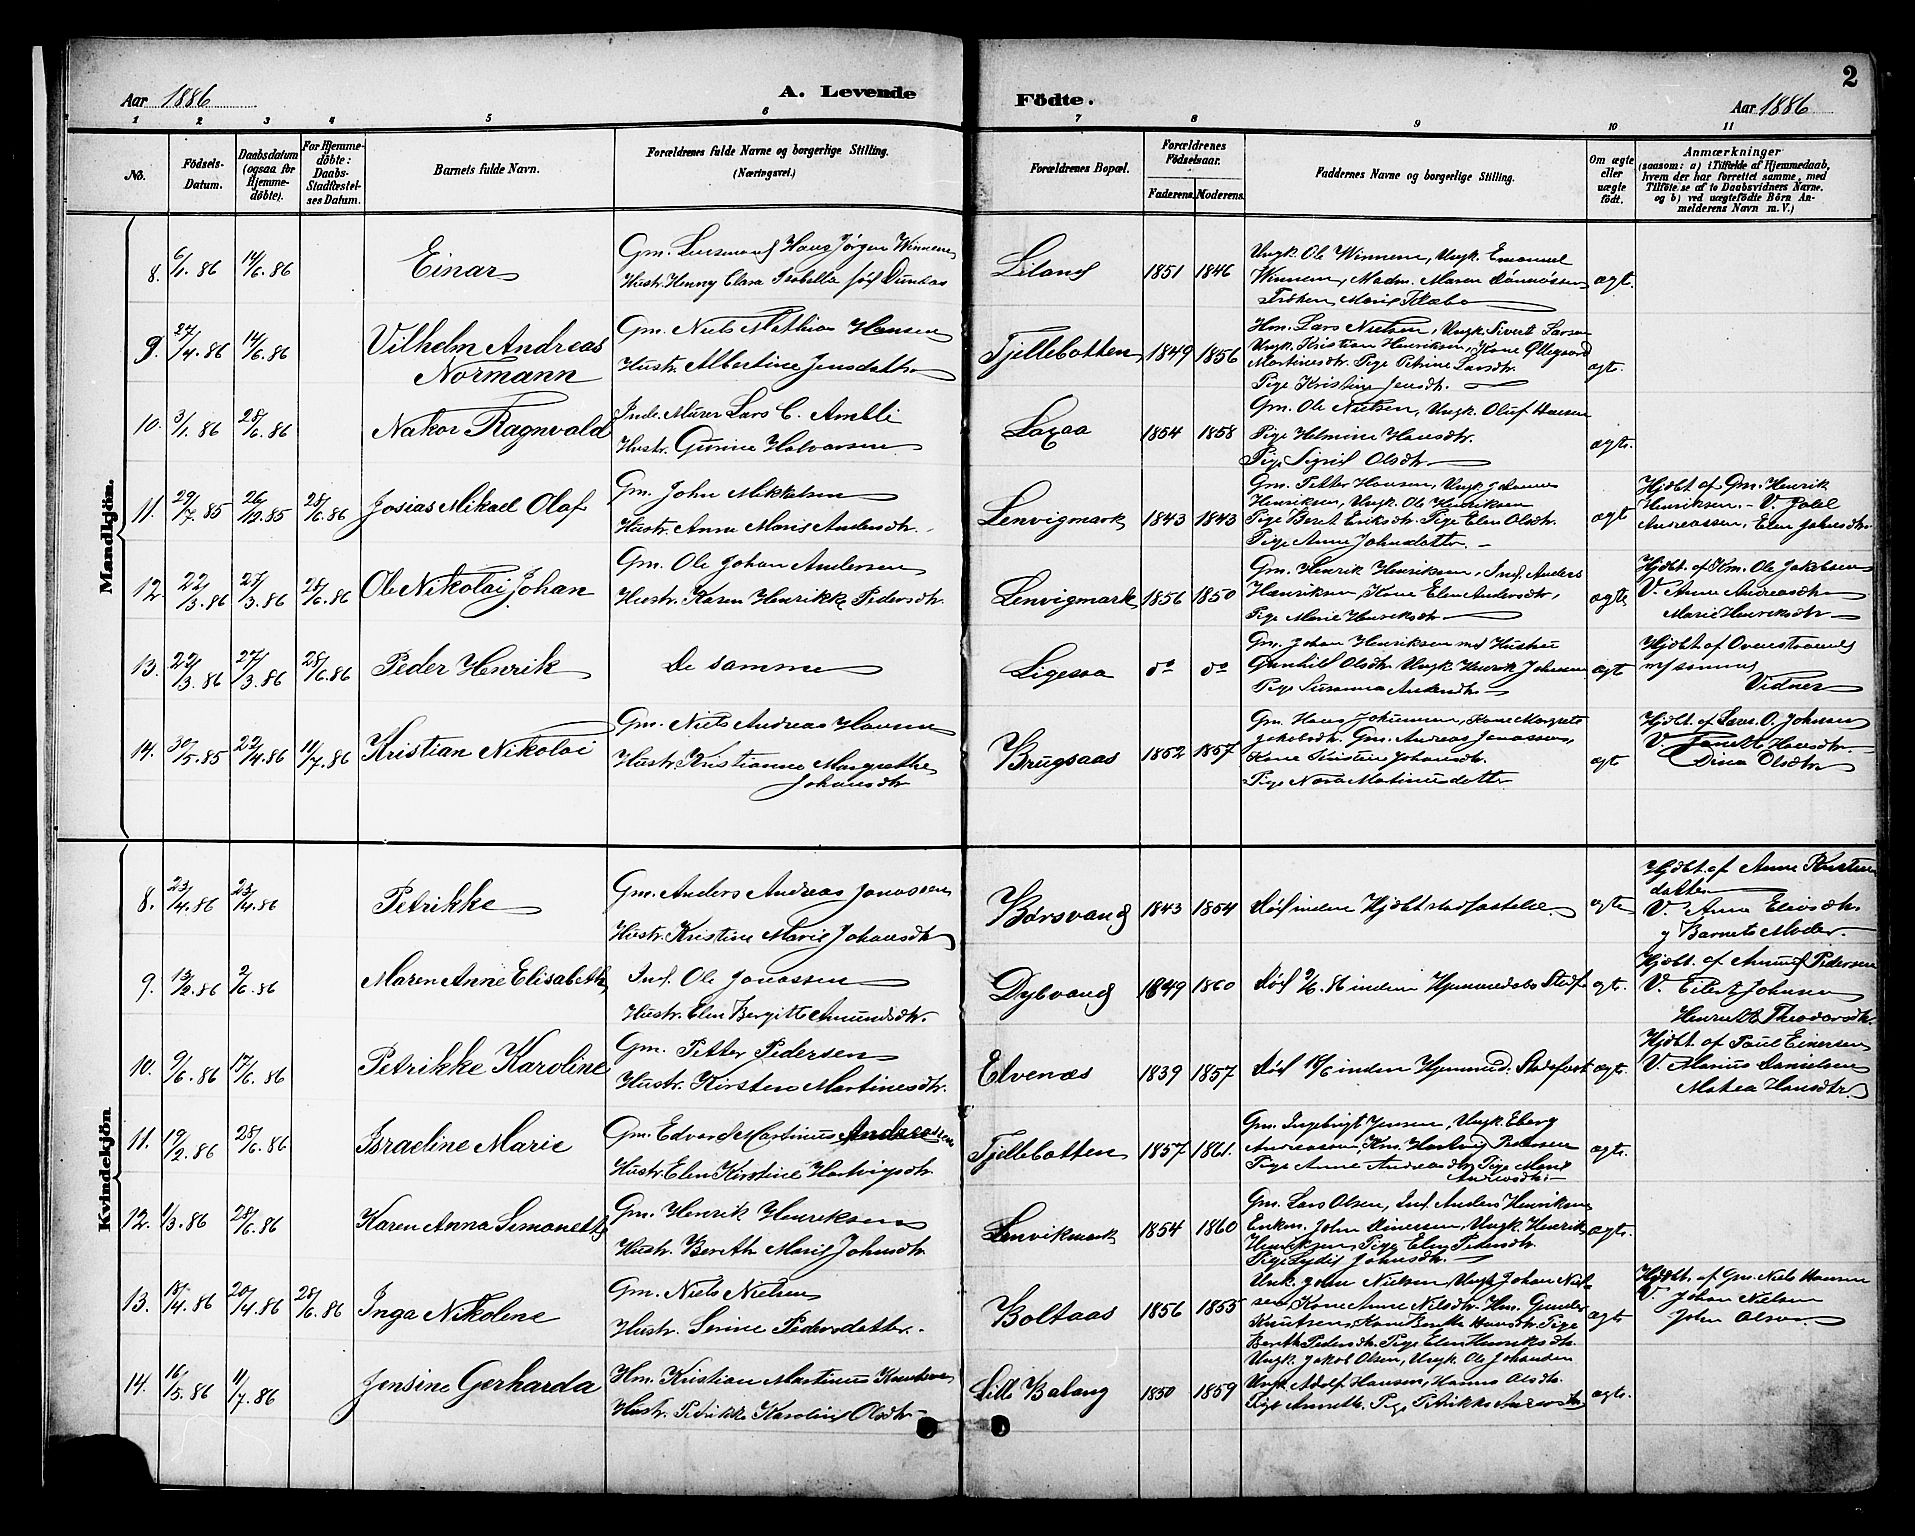 2
Aar 1886
A. Levende
Födte.
Aar 1886
1 2 3 4 5 6 7 8 9 10 11
No.
Födsels-
Datum.
Daabsdatum
(ogsaa for
Hjemme-
döbte).
For Hjemme-
döbte:
Daabs-
Stadfæstel-
ses Datum.
Barnets fulde Navn.
Forældrenes fulde Navne og borgerlige Stilling.
(Næringsvei.)
Forældrenes Bopæl.
Forældrenes
Födselsaar.
Faderens. Moderens.
Faddernes Navne og borgerlige Stilling.
Om ægte
eller
uægte
födt.
Anmærkninger
(saasom: a) i Tilfælde af Hjemmedaab,
hvem der har forrettet samme, med
Tilföielse af to Daabsvidners Navne.
og b) ved uægtefödte Börn An-
melderens Navn m. V.)
Mandkjön.
8. 6/1. 86 14/6. 86 Einar
Gm. Hans Jørgen Winnem
Hustr. Henny Clara Isabella fød Dundas
Liland 1851 1846
Ungk. Ole Winnem, Ungk. Emanuel
Winnem, Madm. Maren
Frøken Marie
ægt.
9. 27/4. 86 14/6. 86 Vilhelm Andreas
Normann
Gm. Niels Mathias Hansen
Hustr. Albertine Jensdattr
Tjellebotten 1849 1856
Hm. Lars Nielsen, Ungk. Sivert Larsen
Ungk. Kristian Henriksen, Kone Ollegaard
Martinesdtr. Pige Petrine Larsdtr.
Pige Kristine Jensdtr.
ægt.
10. 3/1. 86 28/6. 86 Nakor Ragnvald
Inds. Murer Lars C. Ambli
Hustr. Gurine Halvorsen
Laxaa 1854 1858
Gm. Ole Nielsen, Ungk. Oluf Hansen
Pige Helmine Hansdtr.
Pige Sigrid Olsdtr.
ægte.
11. 29/7. 85 26/12. 85 28/6. 86 Josias Mikael Olaf
Gm. John Mikkelsen
Hustr. Anne Marie Andersdtr.
Lenvigmark 1843 1843
Gm. Petter Hansen, Ungk. Johannes
Henriksen, Ungk. Ole Henriksen
Pige Beret Eriksdtr. Pige Elen Olsdtr.
Pige Anne Johnsdatter.
ægt
Hjdbt. af Gm. Henrik
Henriksen. V.
Andreassen, Elen Johnsdtr.
12. 22/3. 86 27/3. 86 28/6. 86 Ole Nikolai Johan
Gm. Ole Johan Andersen
Hustr. Karen Henrikke Pedersdtr.
Lenvigmark 1856 1850
Gm. Henrik Henriksen, Ind. Anders
Henriksen, Kone Elen Andersdtr,
Pige Marie Henriksdtr.
ægte
Hjdbt. af Km. Ole Jakobsen
V. Anne Andreasdtr
Marie Henriksdtr
13. 22/3. 86 27/3. 86 28/6. 86 Peder Henrik
De samme
Ligesaa do do
Gm. Johan Henriksen med Hustru
Gunhild Olsdtr. Ungk. Henrik Johnsen
Pige Susanna Andersdtr
ægt
Hjdbt af Ovenstaaende
m/ samme
Vidner
14. 30/5. 85 22/4. 86 11/7. 86 Kristian Nikolai
Gm. Niels Andreas Hansen
Hustr. Kristianne Margrethe
Johansdtr
Brugsaas 1852 1857
Gm. Hans Johnsen, Kone Margrete
Jakobsdtr. Gm. Andreas Jonassen,
Kone Kirstine Johansdtr.
Pige Nora Martinusdatter
ægt
Hjdbt. af Lars O. Johnsen
V. Hansdtr.
Dina Olsdtr
Kvindekjön.
8. 23/4. 86 23/4. 86 Petrikke
Gm. Anders Andreas Jonassen
Hustr. Kristine Marie Johansdtr
Børsvand 1843 1854
Død inden Hjdbt stadfæstelse.
ægte
Hjdbt af Anne Kristen
datter
V. Anne Eliasdtr.
og Barnets Moder.
9. 13/2. 86 2/6. 86 Maren Anne Elisabeth
Ind. Ole Jonassen
Hustr. Elen Bergitte Amundsdtr.
Dybvand 1849 1860
Død inden Hjemmedaabs Stadf.
ægt.
Hjdbt. af Amund Pedersen
V. Eibert Johnsen
Henriette Theodorsdtr.
10. 9/6. 86 17/6. 86 Petrikke Karoline
Gm. Petter Pedersen
Hustr. Kirsten Martinesdtr.
Elvenæs 1839 1857
Død inden Hjemmed. Stadfæst
ægt.
Hjdbt. af Paul Einersen
V. Marius Danielsen
Matea Hansdtr.
11. 19/2. 86 28/6. 86 Israeline Marie
Gm. Edvard Martinus Andreassen
Hustr. Elen Kirstine Hartvigsdtr.
Tjellebotten 1857 1861.
Gm. Ingebrigt Jensen, Ungk. Eberg
Andreassen, Km. Hartvig Pedersen
Pige Anne Andreasdtr, Pige Marie
Andreasdtr.
ægt.
12. 1/3. 86 28/6. 86 Karen Anna Simonette
Gm. Henrik Henriksen
Hustr. Berethe Marie Johnsdtr.
Lenvikmark 1854 1860
Gm. Lars Olsen, Ind. Anders Henriksen
Enkm. John Einersen, Ungk. Henrik
Henriksen, Pige Elen Pedersdtr.
Pige Lydie Johnsdtr.
ægt.
13. 18/4. 86 20/4. 86 28/6. 86 Inga Nikolene
Gm. Niels Nielsen
Hustr. Serine Pedersdatter.
Boltaas 1856 1855
Ungk. John Nielsen, Ungk. Johan Niel-
sen, Kone Anne Nilsdtr. Hm. Gunder
Knutsen, Kone Hansdtr. Pige
Berith Pedersdtr. Pige Elen Henriksdtr.
ægt.
Hjdbt. af Gm. Niels Hansen
V. Johan Nielsen
John Olsen
14. 16/5. 86 11/7. 86 Jensine Gerharda
Hm. Kristian Martinus Knutsen
Hustr. Petrikke Karoline Olsdtr.
Lille Balang 1850 1859
Ungk. Jakob Olsen, Ungk. Ole Johansen
Ungk. Adolf Hansen, Hanna Olsdtr.
Pige Annette, Pige Petrikke Andreasdtr
ægte.